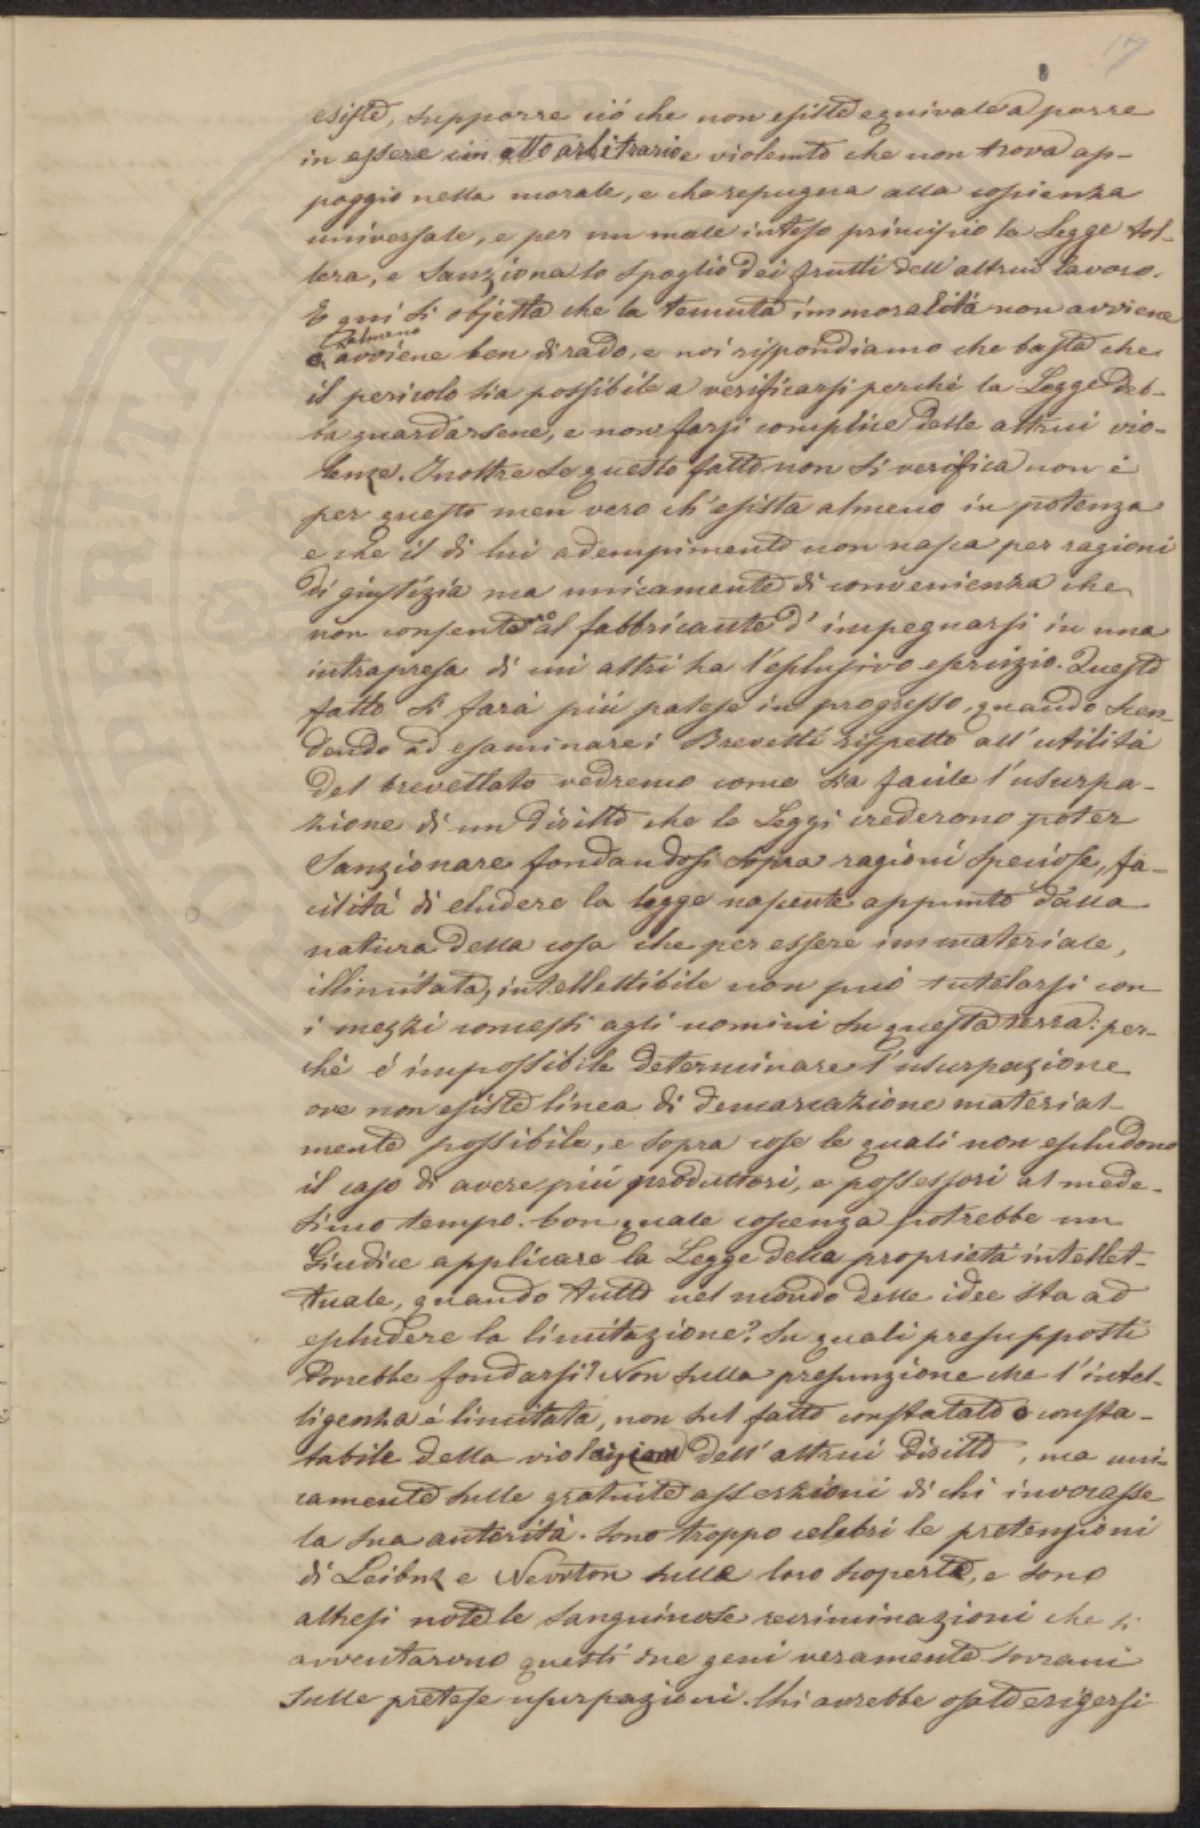 17
esiste, supporre ciò che non esiste equivale a porre
in essere un atto arbitrario e violento che non trova ap-
poggio nella morale, e che repugna alla coscienza
universale, e per un male inteso principio la Legge tol-
lera, e sanziona lo spoglio dei frutti dell'altrui lavoro.
E qui si objetta che la temuta immoralità non avviene
o almeno
avviene ben di rado, e noi rispondiamo che basta che
il pericolo sia possibile a verificarsi perché la Legge deb-
ba guardarsene, e non farsi complice delle altrui vio-
lenze. Inoltre se questo fatto non si verifica non è
per questo men vero ch'esista almeno in potenza
e che il di lui adempimento non nasca per ragioni
di giustizia ma unicamente di convenienza che
non consentono al fabbricante d'impegnarsi in una
intrapresa di cui altri ha l'esclusivo esercizio. Questo
fatto si farà più palese in progresso, quando scen-
dendo ad esaminare i Brevetti rispetto all'utilità
del brevettato vedremo come sia facile l'usurpa-
zione di un diritto che le Leggi crederono poter
sanzionare fondandosi sopra ragioni speciose, fa-
cilità di eludere la legge nascente appunto dalla
natura della cosa che per essere immateriale,
illimitata, intellettibile non può tutelarsi con
i mezzi concessi agli uomini su questa terra: per-
ché è impossibile determinare l'usurpazione
ove non esiste linea di demarcazione material-
mente possibile, e sopra cose le quali non escludono
il caso di avere più produttori, e possessori al mede-
simo tempo. Con quale coscenza potrebbe un
Giudice applicare la Legge della proprietà intellet-
tuale, quando tutto nel mondo delle idee sta ad
escludere la limitazione? Su quali presupposti
dovrebbe fondarsi? Non sulla presunzione che l'intel-
ligenza è limitata, non sul fatto constatato o consta-
tabile della violazione dell'altrui diritto, ma uni-
camente sulle gratuite asserzioni di chi invocasse
la sua autorità. Sono troppo celebri le pretensioni
di Leibnz e Newton sulle loro scoperte, e sono
altresi note le sanguinose recriminazioni che si
avventarono questi due geni veramente sovrani
sulle pretese usurpazioni. Chi avrebbe osato erigersi
PROSPERITATI PUBLICAE